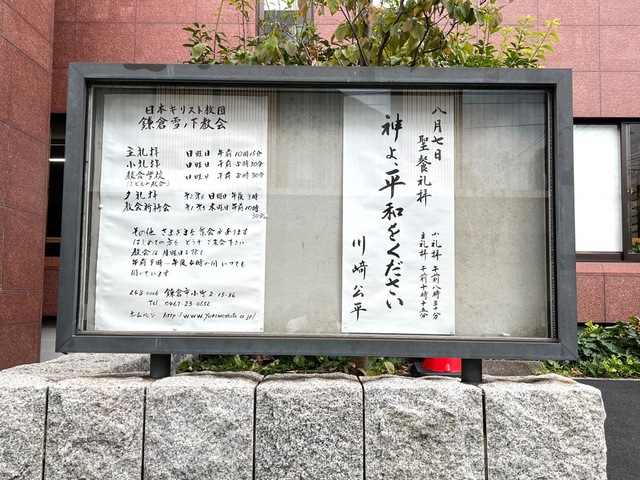 日本キリスト教団
鎌倉雪ノ下教会
主礼拝 日曜日 午前10時15分
小礼拝 日曜日 午前8時30分
教会学校 日曜日 午前8時30分
(こどもの教会)
夕礼拝 日曜日 午後
教会祈祷会 木曜日 午前10時
30分
その他 さまざまな集会があります
はじめての方も どうぞ ご来会下さい
教会は 月曜日を除く
午前9時-午後4時の間 いつでも
開いています
248-0006 鎌倉市小町2-13-36
Tel 0467-23-0652
ホームページ http://www.yukinoshita.or.jp/
八月七日 聖餐礼拝
小礼拝 午前八時三十分
主礼拝 午前十時十五分
神よ、平和をください
川﨑 公平